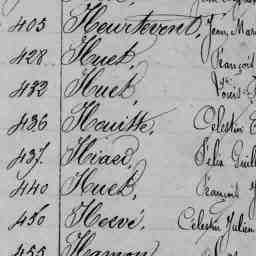 405 Heurtevent, Jean, Mar
428 Huet, François
432 Huet, Louis
436 Houitte, Celestin
437 Hiard, Felix Guill
440 Huet, François J
450 Hervé, Célestin Julien
455 Hamon